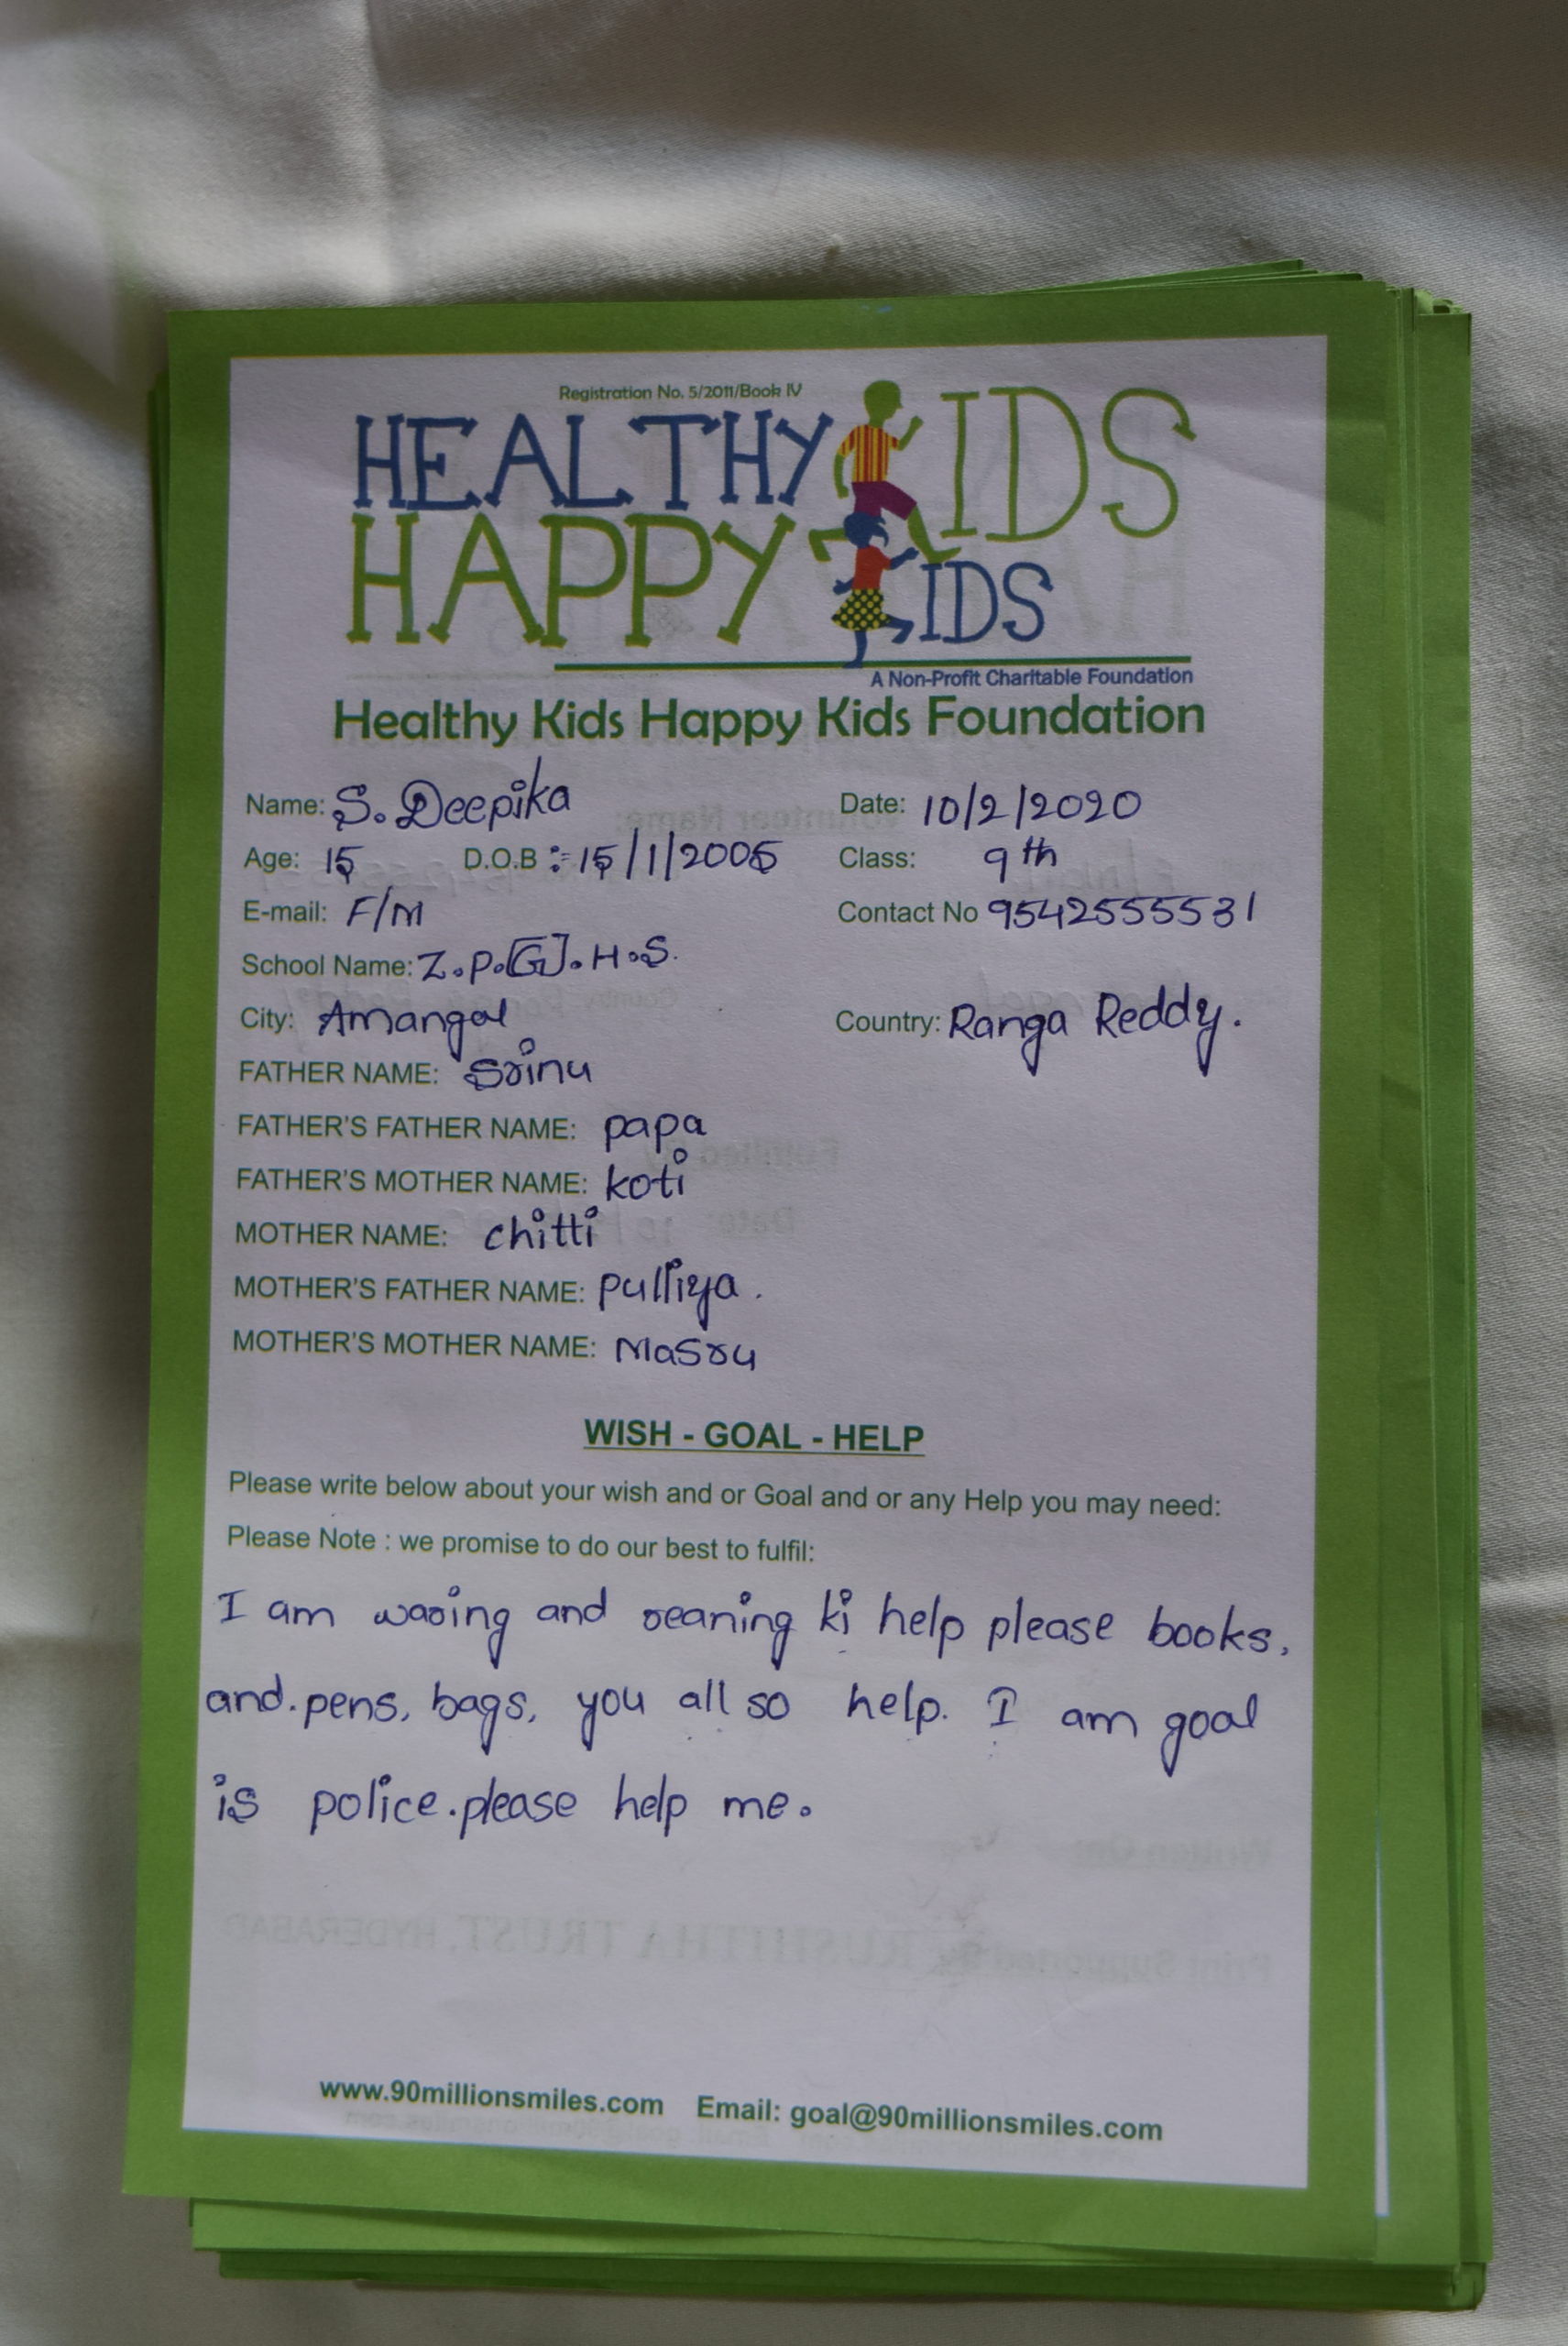 Registration No. 5/2011/Book IV
HEALTHY KIDS
HAPPY KIDS
A Non-Profit Charitable Foundation
Healthy Kids Happy Kids Foundation
Name: S. Deepika Date: 10/2/2020
Age: 15 D.O.B :- 15/1/2005 Class: 9th
E-mail: F/M Contact No 9542555531
School Name: Z.P.[G].H.S.
City: Amangal Country: Ranga Reddy.
FATHER NAME: Srinu
FATHER'S FATHER NAME: papa
FATHER'S MOTHER NAME: koti
MOTHER NAME: chitti
MOTHER'S FATHER NAME: pulliya.
MOTHER'S MOTHER NAME: Masru
WISH - GOAL - HELP
Please write below about your wish and or Goal and or any Help you may need:
Please Note : we promise to do our best to fulfil:
I am waring and reaning ki help please books,
and. pens, bags, you all so help. I am goal
is police. please help me.
www.90millionsmiles.com Email: goal@90millionsmiles.com